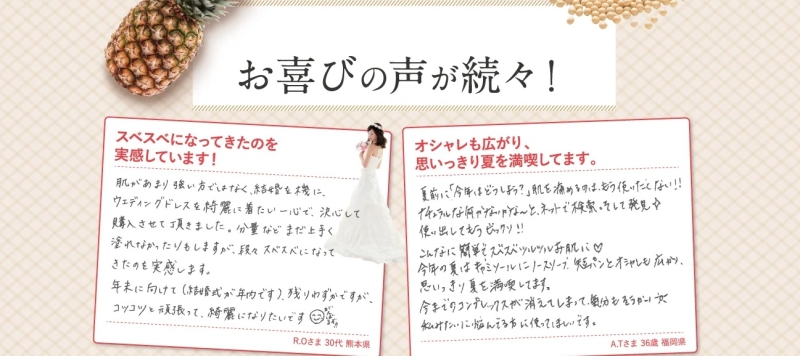 お喜びの声が続々！
スベスベになってきたのを
実感しています！
肌があまり強い方ではなく、結婚を機に、
ウエディングドレスを綺麗に着たい一心で、決心して
購入させて頂きました。分量などまだ上手く
塗れなかったりもしますが、段々スベスベになって
きたのを実感します。
年末に向けて(結婚式が年内です)、残りわずかですが、
コツコツと頑張って、綺麗になりたいです
R.Oさま 30代 熊本県
オシャレも広がり、
思いっきり夏を満喫してます。
夏前に「今年はどうしよう?」肌を痛めるのは、もう使いたくない!!
ナチュラルな何かないかな〜と、ネットで検索。そして発見☆
使い出してもうビックリ!!
こんなに簡単でスベスベツルツルお肌に♡
今年の夏はキャミソールにノースリーブ、短パンとオシャレも広がり、
思いっきり夏を満喫してます。
今までのコンプレックスが消えてしまって、気分も
私みたいに悩んでる方に使ってほしいです。
A.Tさま 36歳 福岡県